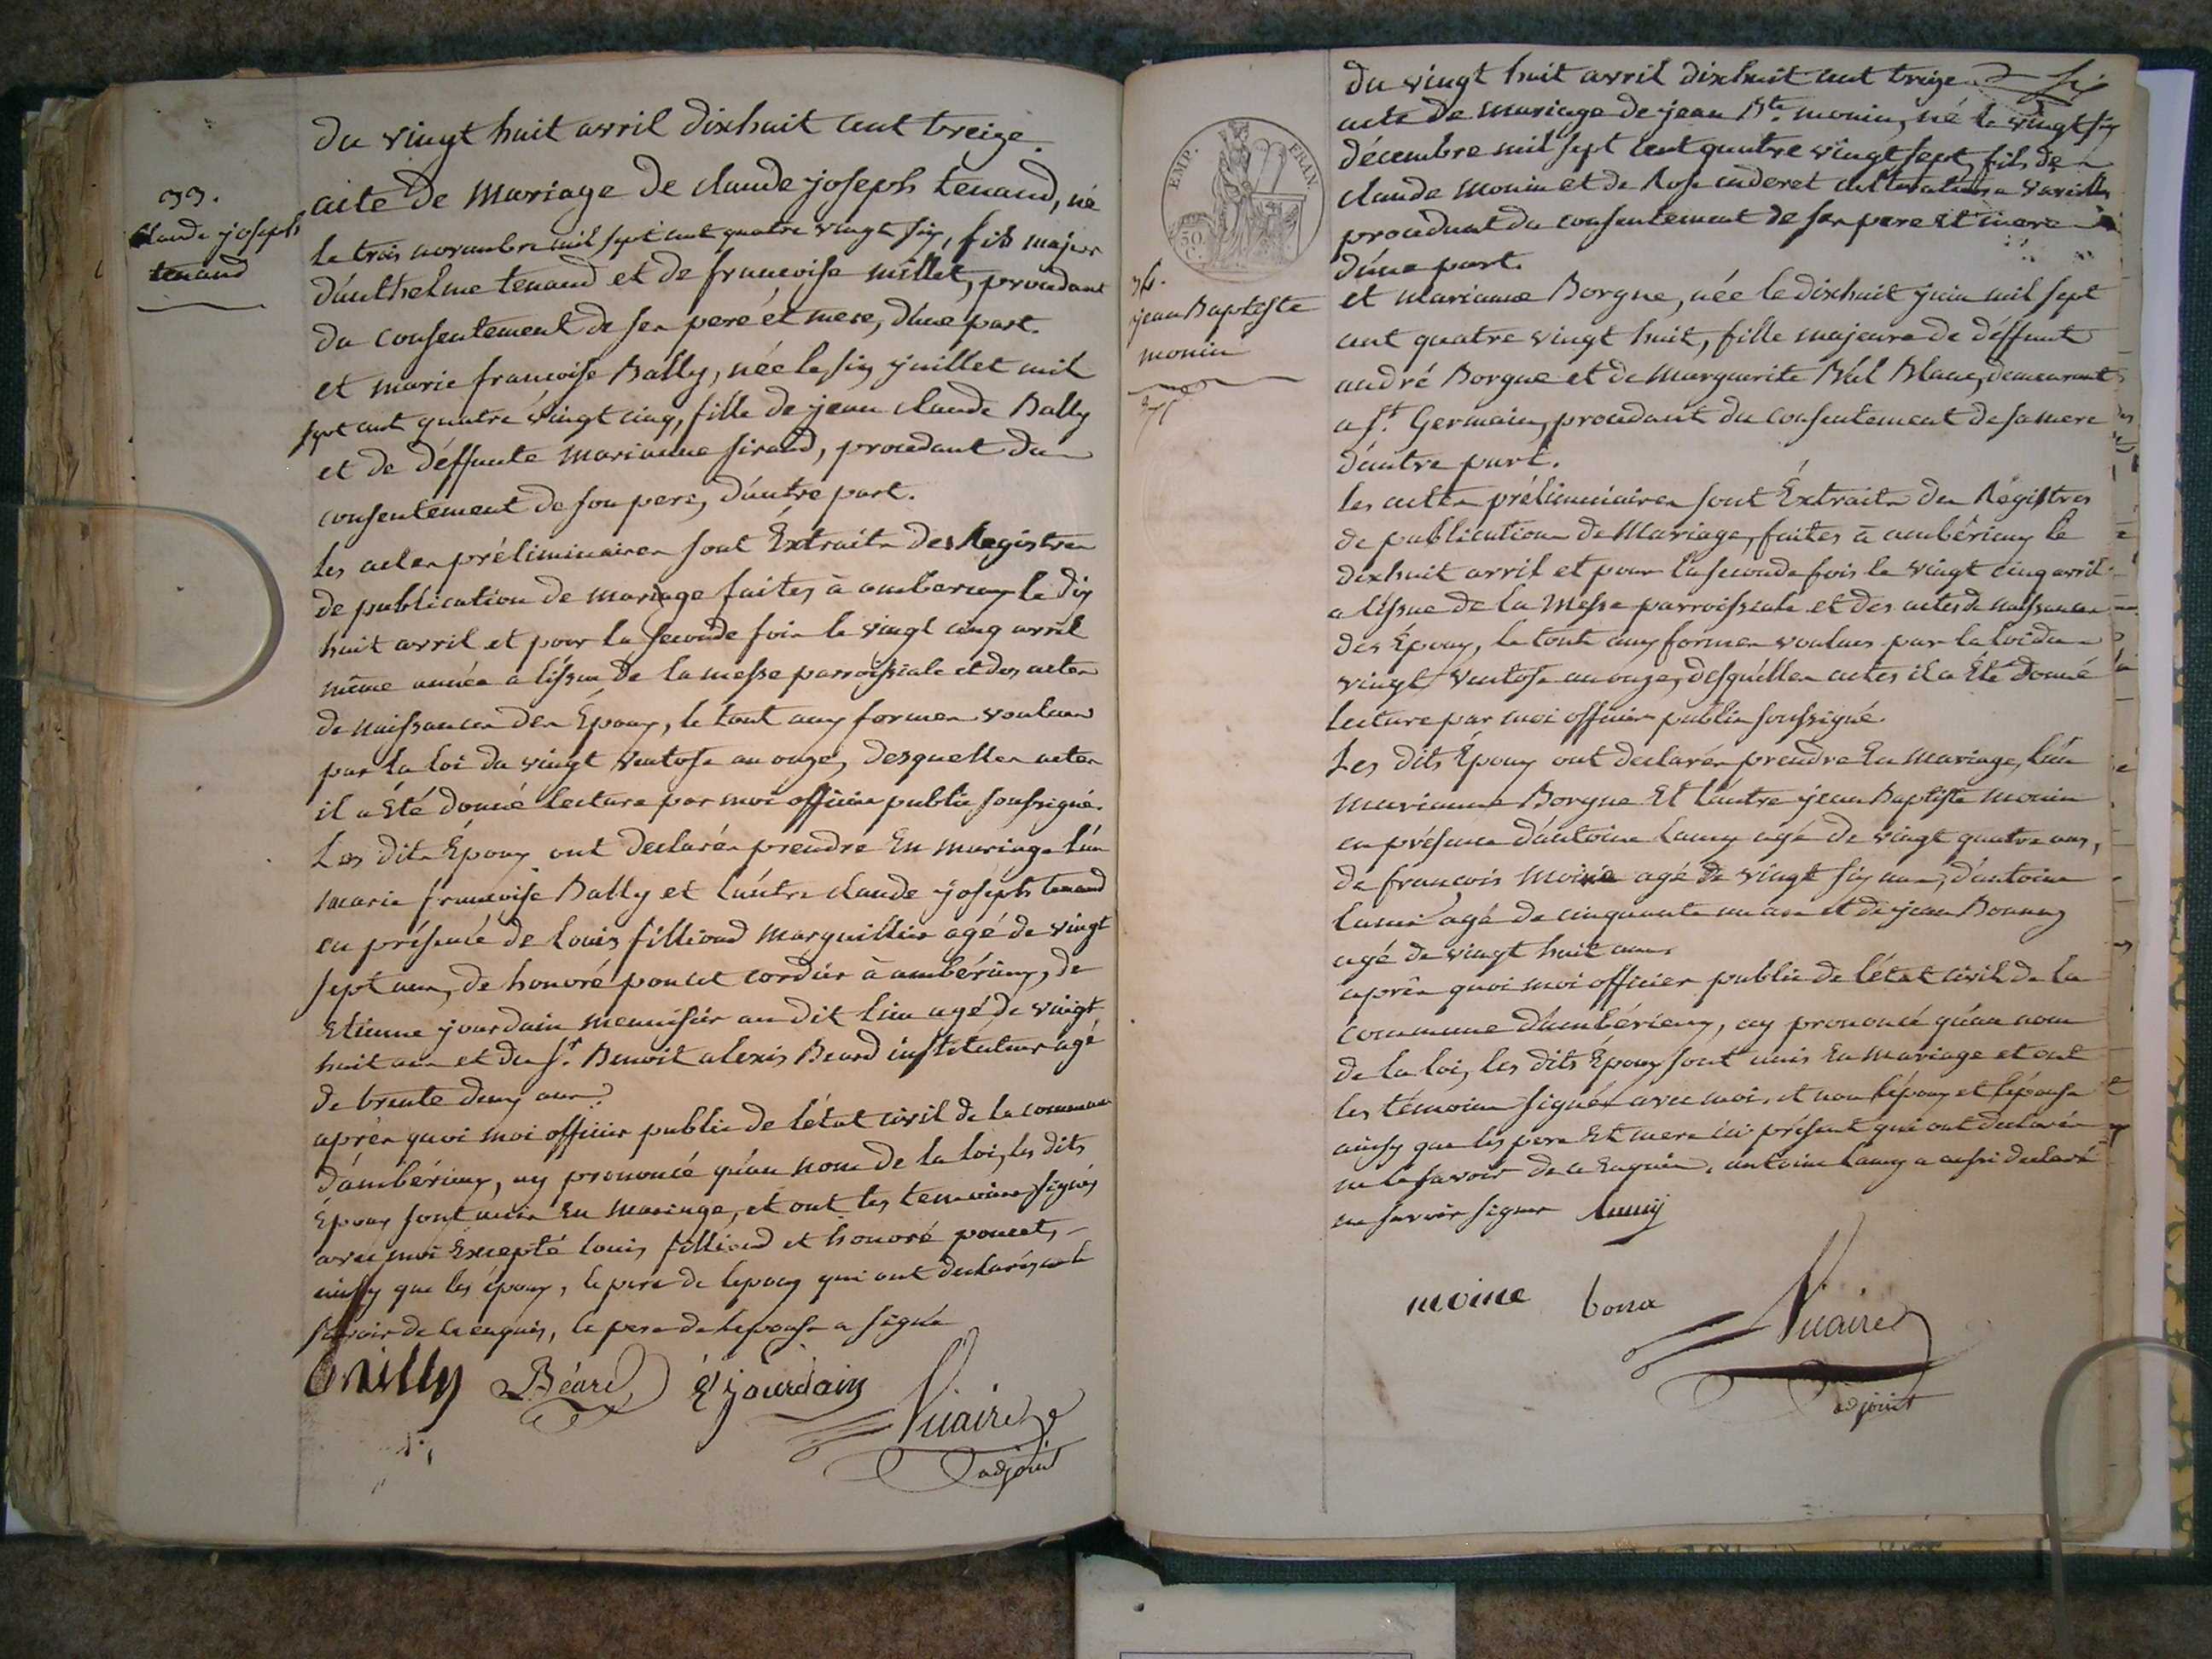 du vingt huit avril dixhuit cent treize.
33.
Claude joseph
tenand
acte de mariage de claude joseph tenand, né
le trois novembre mil sept cent quatre vingt six, fils majeur
d'anthelme tenand et de francoise millet, procedant
du consentement de ses peré et mere, d'une part.
et marie francoise Bally, née le six juillet mil
sept cent quatre vingt cinq, fille de jean claude Bally
et de déffunte marianne sirand, procedant du
consentement de son pere, d'autre part.
les actes préliminaires sont Extraits des Registres
de publication de mariage faites à amberieux le dix
huit avril et pour la seconde fois le vingt cinq avril
même année a l'issue de la messe parroissiale et des actes
de naissances des Époux, le tout aux formes voulues
par la loi du vingt ventose an onze, desquelles actes
il a Eté donné lecture par moi officier public soussigné.
Les dits Époux ont declarés prendre En mariage l'un
marie francoise Bally et l'autre claude joseph tenand
en présence de louis filliond marguillier agé de vingt
sept ans, de honoré poncet cordier à ambérieux, de
Etienne jourdain menuisier au dit lieu agé de vingt
huit ans et du Sr. Benoit alexis Beard instituteur agé
de trente deux ans.
après quoi moi officier public de l'état civil de la commune
d'ambérieux, ay prononcé qu'au nom de la loi, les dits
Époux sont unis En mariage, et ont les temoins signés
avec moi Excepté louis filliond et honoré poncet,
ainsy que les époux, le pere de lepoux qui ont declarés ne le
savoir de ce enquis, le pere de lepouse a signé
Bailly Béard E jourdain
Vuaire
adjoint
du vingt huit avril dixhuit cent treize
EMP. FRAN.
50 C.
34.
jean Baptiste
monin
acte de mariage de jean Bte. monin, né le vingt six
décembre mil sept cent quatre vingt sept, fils de
claude monin et de Rose caderet cultivateurs a vareilles
procedant du consentement de ses pere Et mere
d'une part.
et marianne Borgne, née le dixhuit juin mil sept
cent quatre vingt huit, fille majeure de déffunt
andré Borgne et de marguerite Bâl Blanc, demeurant
a St. Germain, procedant du consentement de sa mere
d'autre part.
les actes préliminaires sont Éxtraits des Régistres
de publications de Mariage, faites à ambérieux le
dixhuit avril et pour la seconde fois le vingt cinq avril
a l'issue de la Messe parroissiale et des actes de naissances
des Époux, le tout aux formes voulues par la loi du
vingt ventose an onze, desquelles actes il a Eté donné
lecture par moi officier public soussigné.
Les dits Époux ont declarés prendre En mariage, l'un
marianne Borgne Et l'autre jean Baptiste monin
en présence d'antoine lamy agé de vingt quatre ans,
de francois Moine agé de vingt six ans, d'antoine
lamy agé de cinquante un ans et de jean Bonnes
agé de vingt huit ans.
après quoi moi officier public de l'état civil de la
commune d'ambérieux, ay prononcé qu'au nom
de la loi, les dits Époux sont unis En mariage et ont
les témoins signés avec moi, et non lépoux et lépouse
ainsy que les pere Et mere ici présent qui ont declarés
ne le savoir de ce Enquis, antoine lamy a aussi declaré
ne savoir signer lamy
moine
Vuaire
adjoint